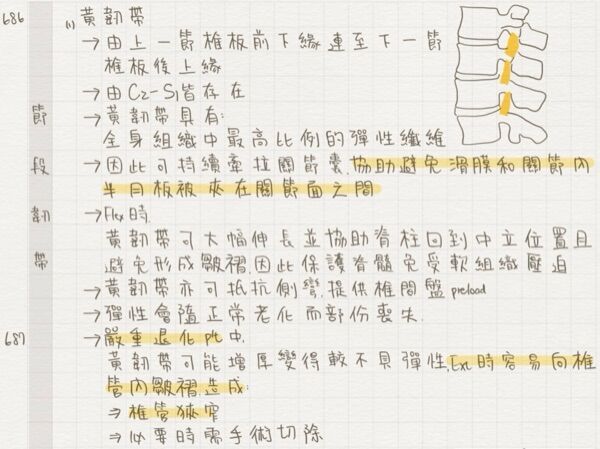 686 (1) 黃韌帶
→由上一節椎板前下緣連至下一節
椎板後上緣
→由C2-S1皆存在
節段韌帶
→黃韌帶具有:
全身組織中最高比例的彈性纖維
→因此可持續牽拉關節囊,協助避免滑膜和關節內
半月板被夾在關節面之間
→Flex時,
黃韌帶可大幅伸長並協助脊柱回到中立位置且
避免形成皺褶,因此保護脊髓免受軟組織壓迫
→黃韌帶亦可抵抗側彎,提供椎間盤preload
→彈性會隨正常老化而部份喪失.
687 →嚴重退化pt中,
黃韌帶可能增厚變得較不具彈性,Ext時容易向椎
管內皺褶,造成:
⇒椎管狹窄
⇒必要時需手術切除